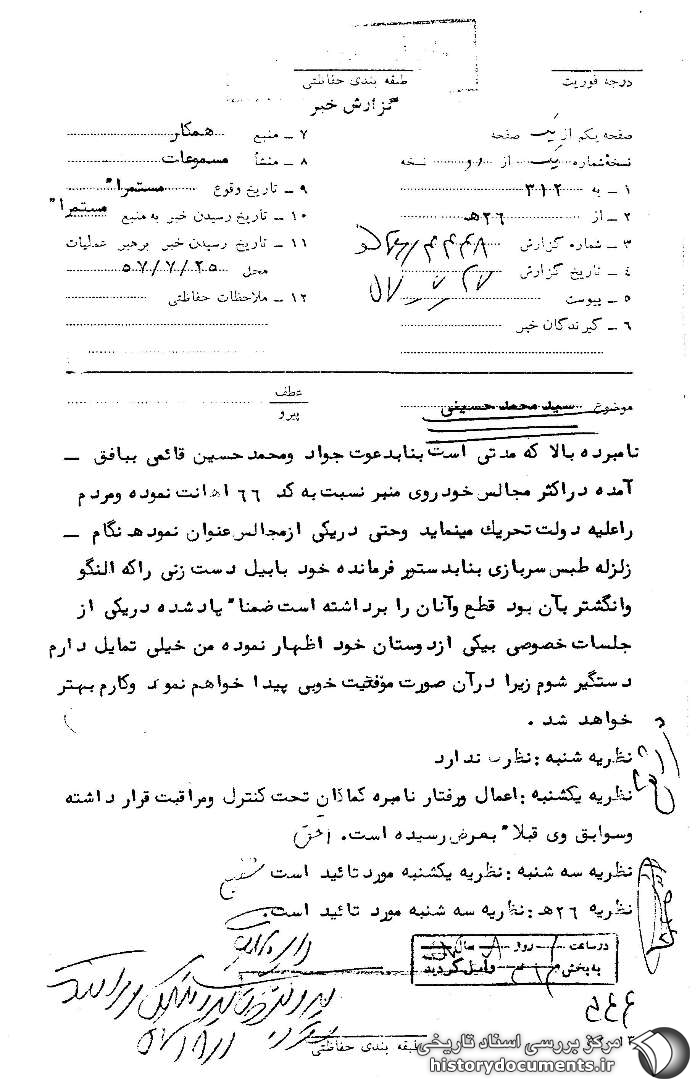 درجه فوریت
طبقه بندی حفاظتی
گزارش خبر
صفحه یکم از یک صفحه
نسخه شماره یک از دو نسخه
۱ - به ۳۱۲
۲ - از ۲۶هـ
۳ - شماره گزارش
۴ - تاریخ گزارش
۵ - پیوست
۶ - گیرندگان خبر
۷ - منبع همکار
۸ - منشأ مسموعات
۹ - تاریخ وقوع مستمرا"
۱۰ - تاریخ رسیدن خبر به منبع مستمرا"
۱۱ - تاریخ رسیدن خبر برهبر عملیات
محل ۵۷/۷/۲۵
۱۲ - ملاحظات حفاظتی
موضوع سید محمد حسینی
عطف
پیرو
نامبرده بالا که مدتی است بنابدعوت جواد ومحمدحسین قائمی ببافق -
آمده دراکثر مجالس خود روی منبر نسبت به کد ۶۶ اهانت نموده ومردم
راعلیه دولت تحریك مینماید وحتی دریکی ازمجالس عنوان نموده هنگام -
زلزله طبس سربازی بنابدستور فرمانده خود بابیل دست زنی راکه النگو
وانگشتر بآن بود قطع وآنان را برداشته است ضمنا" یادشده دریکی از
جلسات خصوصی بیکی ازدوستان خود اظهار نموده من خیلی تمایل دارم
دستگیر شوم زیرا درآن صورت موفقیت خوبی پیدا خواهم نمود وکارم بهتر
خواهد شد .
نظریه شنبه : نظری ندارد
نظریه یکشنبه : اعمال ورفتار نامبره کماکان تحت کنترل ومراقبت قرار داشته
وسوابق وی قبلا" بعرض رسیده است.
نظریه سه شنبه : نظریه یکشنبه مورد تائید است
نظریه ۲۶هـ : نظریه سه شنبه مورد تائید است.
در ساعت روز سال
به بخش واصل گردید
طبقه بندی حفاظتی
مرکز بررسی اسناد تاریخی
historydocuments.ir